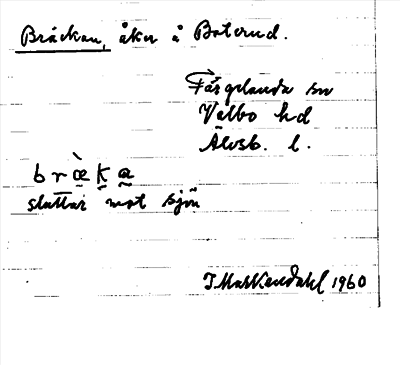 Bräckan, åker å Boterud.
Färgelanda sn
Valbo hd
Älvsb. l.
bræ̀ka
sluttar mot sjön
1960